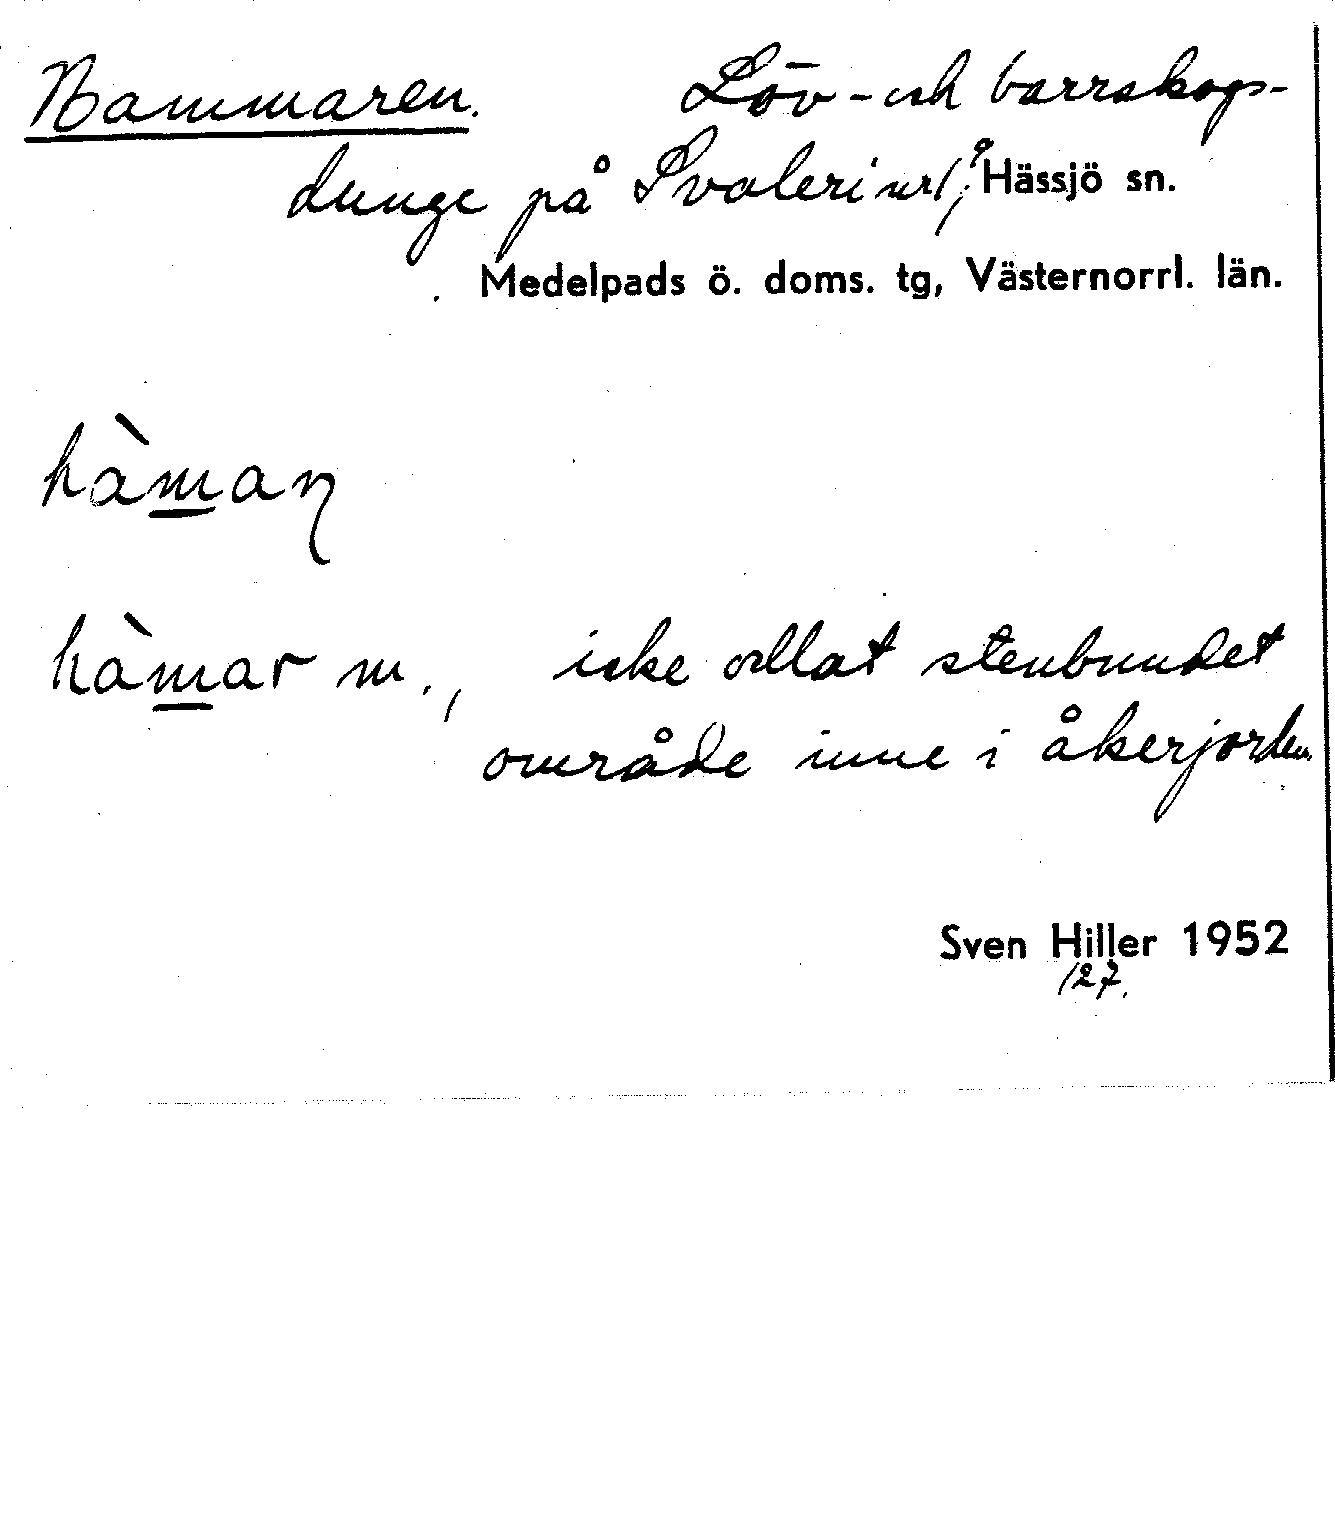 Hammaren. Löv- och barrskogs-
dunge på Hässjö sn.
Medelpads ö. doms. tg, Västernorrl. län.
hàmaɳ
hàmar m., icke odlat stenbundet
område inne i åkerjorden.
Sven Hiller 1952
127.